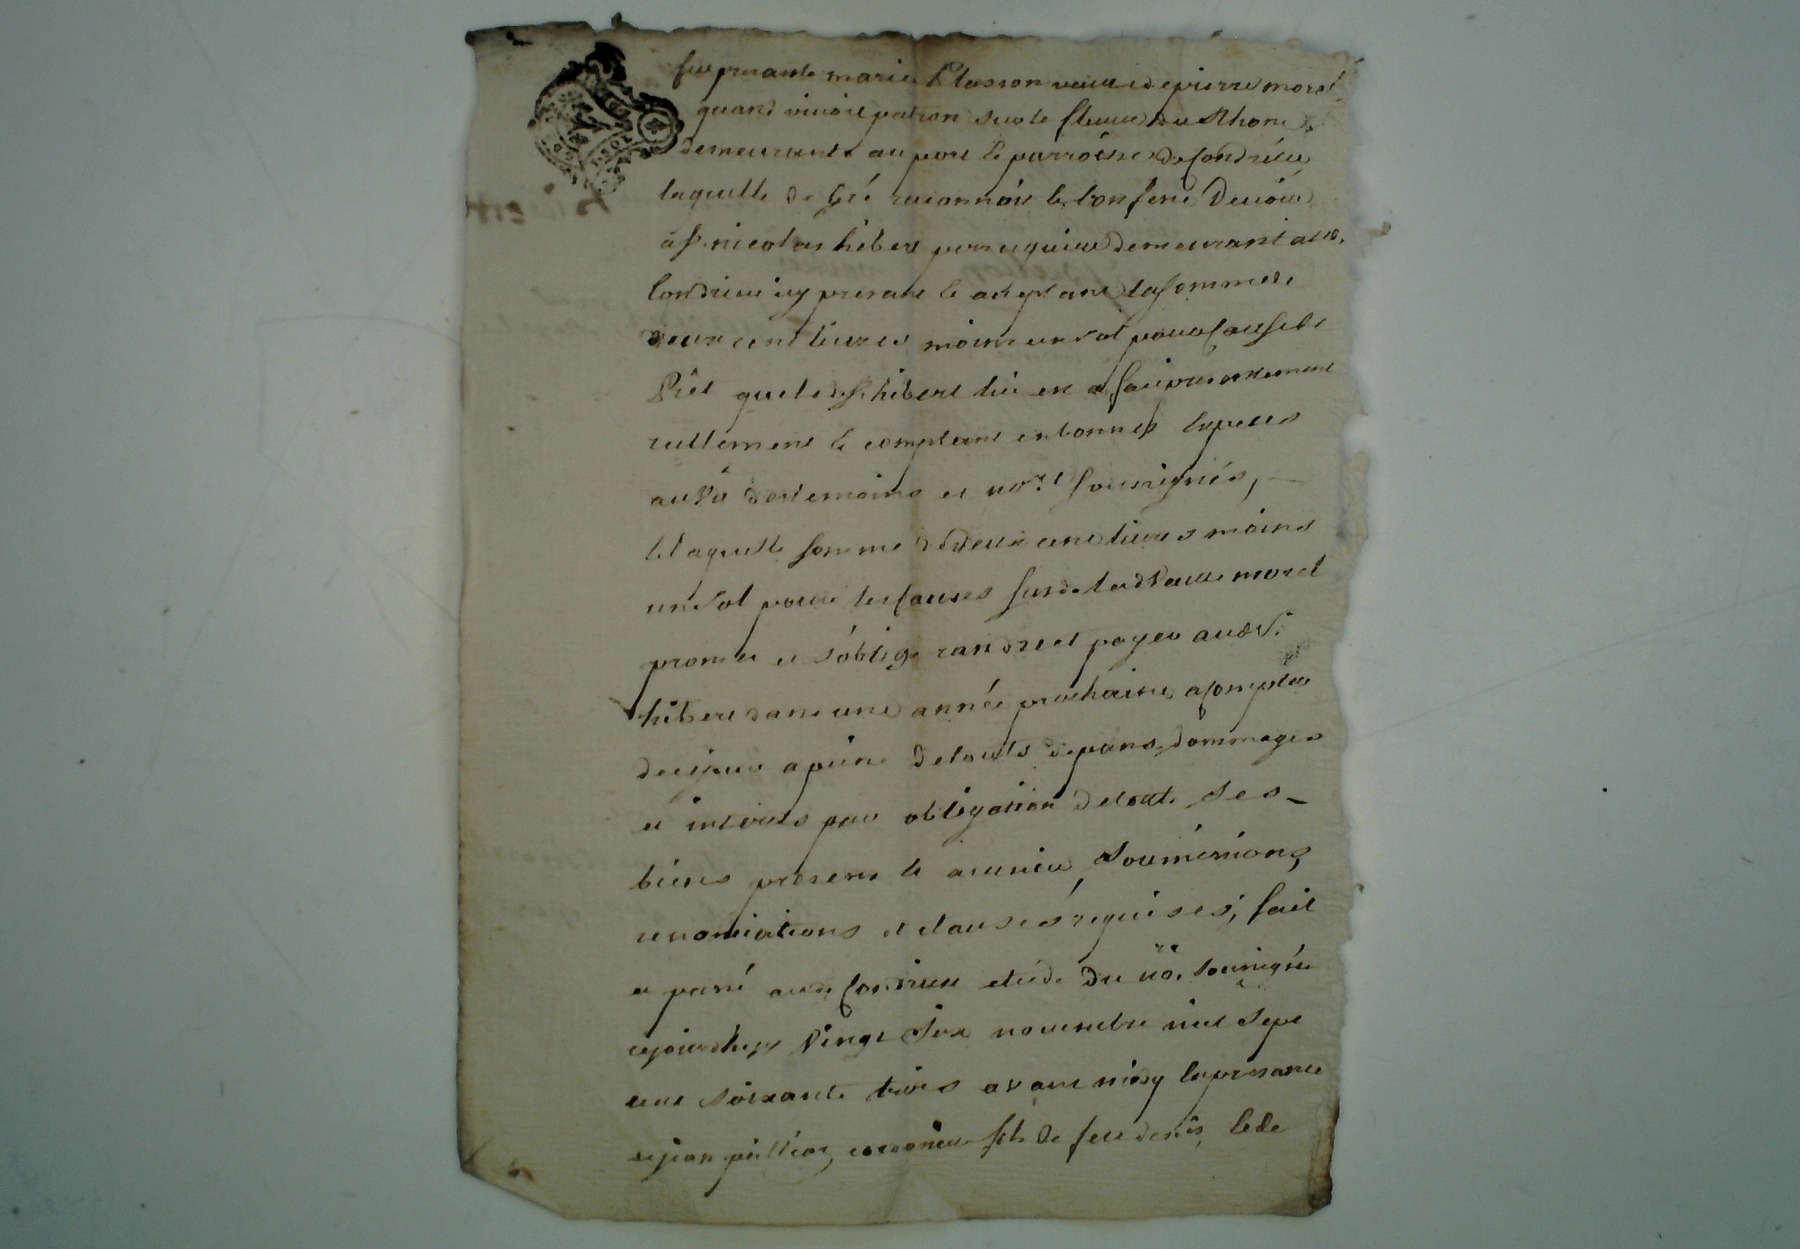 fut presante marie Plasson veuve de pierre morel
quand vivoit patron sur le fleuve du Rhone,
demeurante au port & parroisse de Condrieu
laquelle de gré reconnois & confesse devoir
à Sr. nicolas hibert perruquier demeurant aud.
Condrieu icy presant & acceptant la somme de
deux cent livres moins un sol pour cause de
Prêt que led. Sr. hibert lui en a fait presantement
reellement & comptant en bonnes especes
au Vû des temoins et nore. soussignés,
laquelle somme de deux cent livres moins
un sol pour les causes susd. lad. Veuve morel
promet et s'oblige randre et payer aud. Sr.
hibert dans une année prochaine a compter
de ce jour a peine de touts depans, dommages
et interets par obligation de touts ses
biens presens & avenir, soumissions,
renonciations et clauses requises; fait
et passé aud. Condrieu etude du nore. soussigné
cejourdhuy Vingt six novembre mil sept
cent soixante trois avant midy en presance
de jean cordonnier fils de feu denis, &de